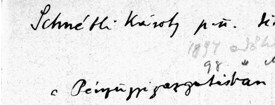 Schnébli Károly p.ü.
1897
98. "
a Pénzügyigazgatásban